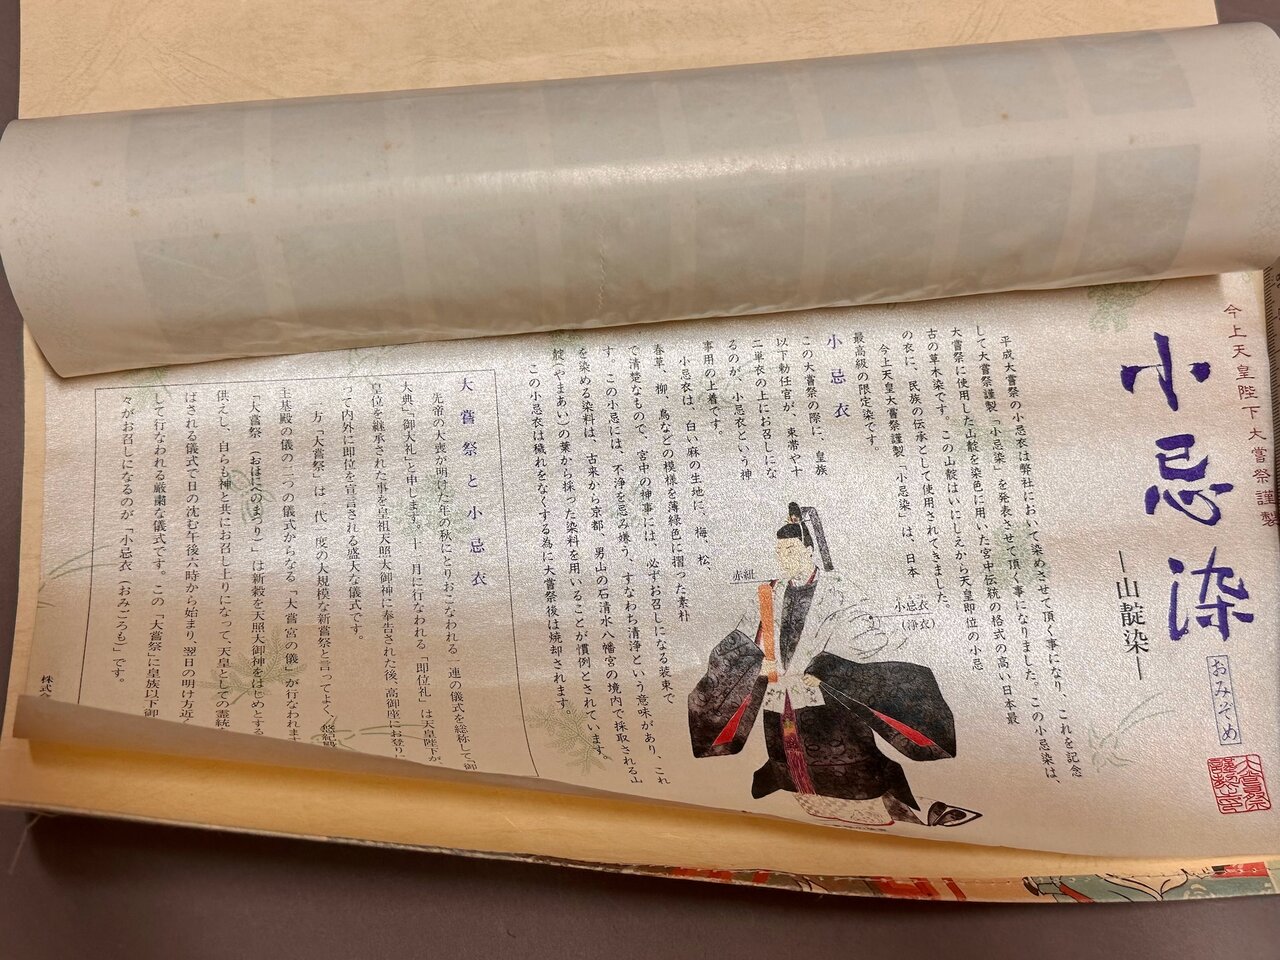 今上天皇陛下大嘗祭謹製
小忌染
―山靛染―
おみぞめ
平成大嘗祭の小忌衣は弊社において染めさせて頂く事になり、これを記念
して大嘗祭謹製「小忌染」を発表させて頂く事になりました。この小忌染は、
大嘗祭に使用した山靛を染色に用いた宮中伝統の格式の高い日本最
古の草木染です。この山靛はいにしえから天皇即位の小忌
の衣に、民族の伝承として使用されてきました。
今上天皇大嘗祭謹製「小忌染」は、日本
最高級の限定染です。
小忌衣
この大嘗祭の際に、皇族
以下勅任官が、束帯や十
二単衣の上にお召しにな
るのが、小忌衣という神
事用の上着です。
小忌衣は、白い麻の生地に、梅、松、
春草、柳、鳥などの模様を薄緑色に摺った素朴
で清楚なもので、宮中の神事には、必ずお召しになる装束で
す。この小忌には、不浄を忌み嫌う、すなわち清浄という意味があり、これ
を染める染料は、古来から京都、男山の石清水八幡宮の境内で採取される山
靛(やまあい)の葉から採った染料を用いることが慣例とされています。
この小忌衣は穢れをなくする為に大嘗祭後は焼却されます。
赤紐
小忌衣
(浄衣)
大嘗祭と小忌衣
先帝の大喪が明けた年の秋にとりおこなわれる一連の儀式を総称して「御
大典」「御大礼」と申します。十一月に行なわれる「即位礼」は天皇陛下が、
皇位を継承された事を皇祖天照大御神に奉告された後、高御座にお登りに
って内外に即位を宣言される盛大な儀式です。
一方、「大嘗祭」は一代一度の大規模な新嘗祭と言ってよく、悠紀殿
主基殿の儀の二つの儀式からなる「大嘗宮の儀」が行なわれます
「大嘗祭(おほにへのまつり)」は新穀を天照大御神をはじめとする
供えし、自らも神と共にお召し上りになって、天皇としての霊統
ばされる儀式で日の沈む午後六時から始まり、翌日の明け方近
して行なわれる厳粛な儀式です。この「大嘗祭」に皇族以下御
々がお召しになるのが「小忌衣(おみころも)」です。
株式会